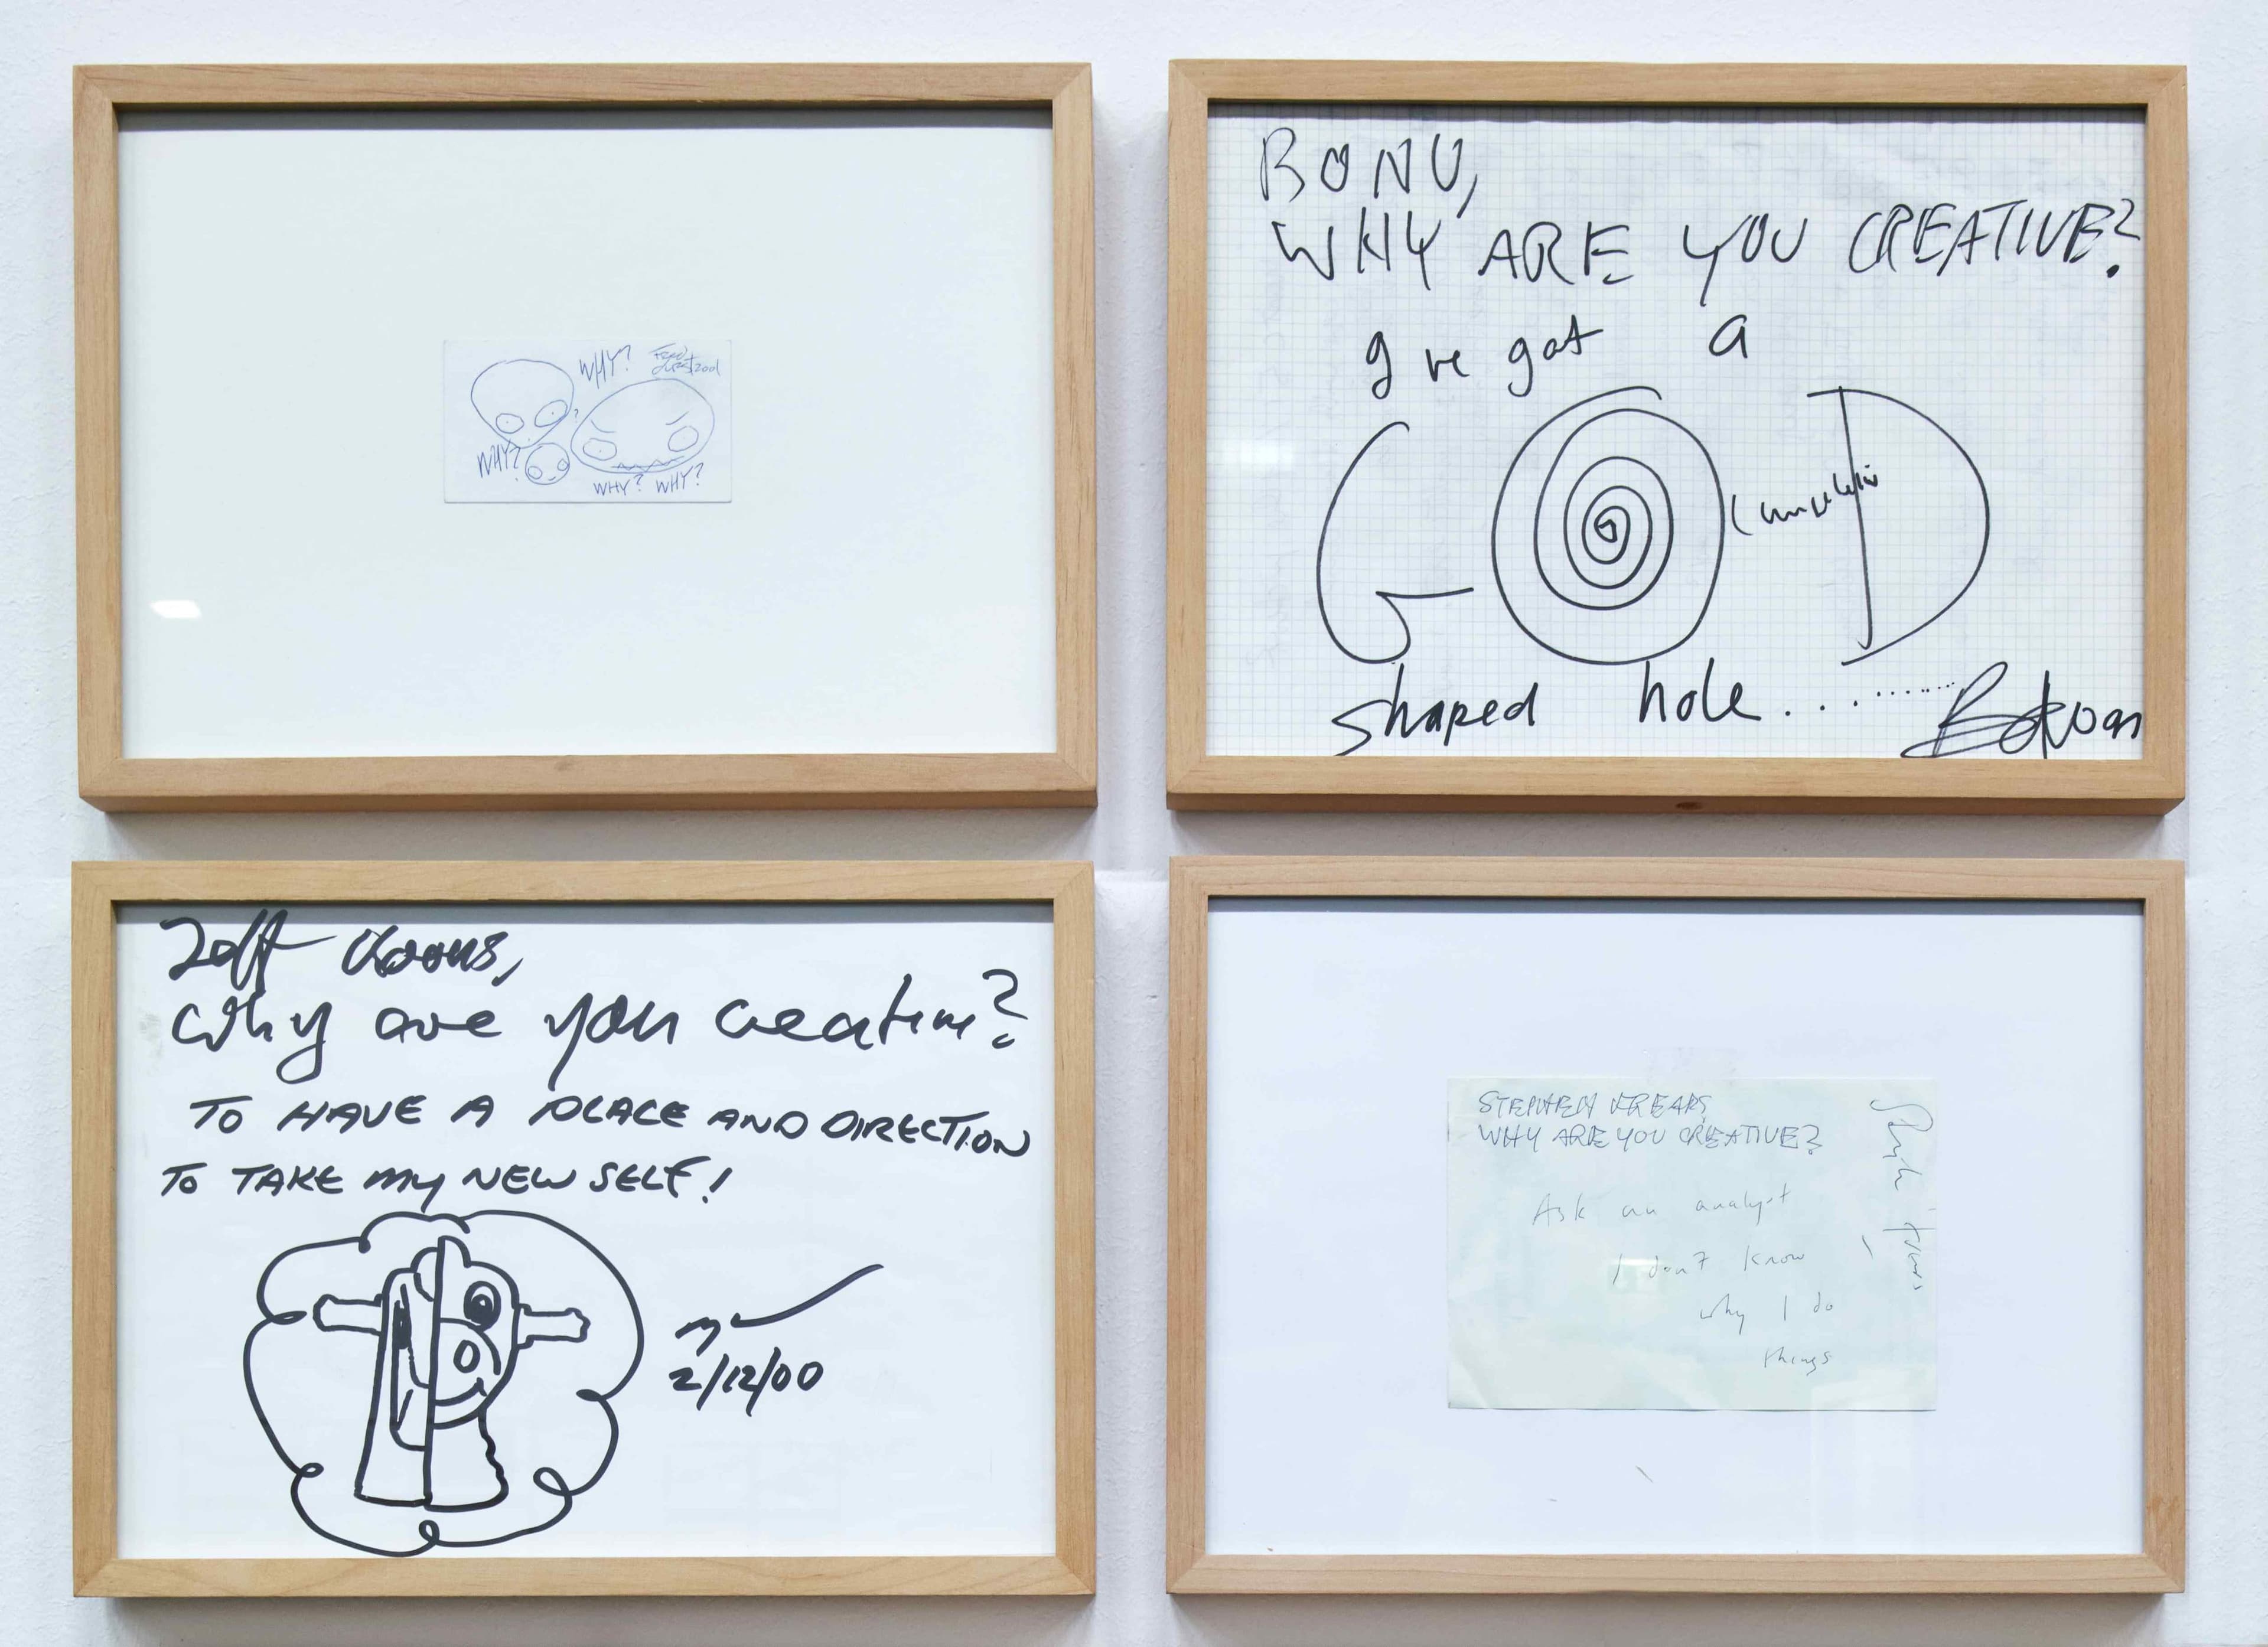 WHY?
WHY?
WHY? WHY?
BONO,
WHY ARE YOU CREATIVE?
I've got a
GOD
shaped hole..........
Jeff Koons,
Why are you creative?
TO HAVE A PLACE AND DIRECTION
TO TAKE MY NEW SELF!
2/12/00
STEPHEN FREARS,
WHY ARE YOU CREATIVE?
Ask an analyst
I don't know
why I do
things
Stephen Frears